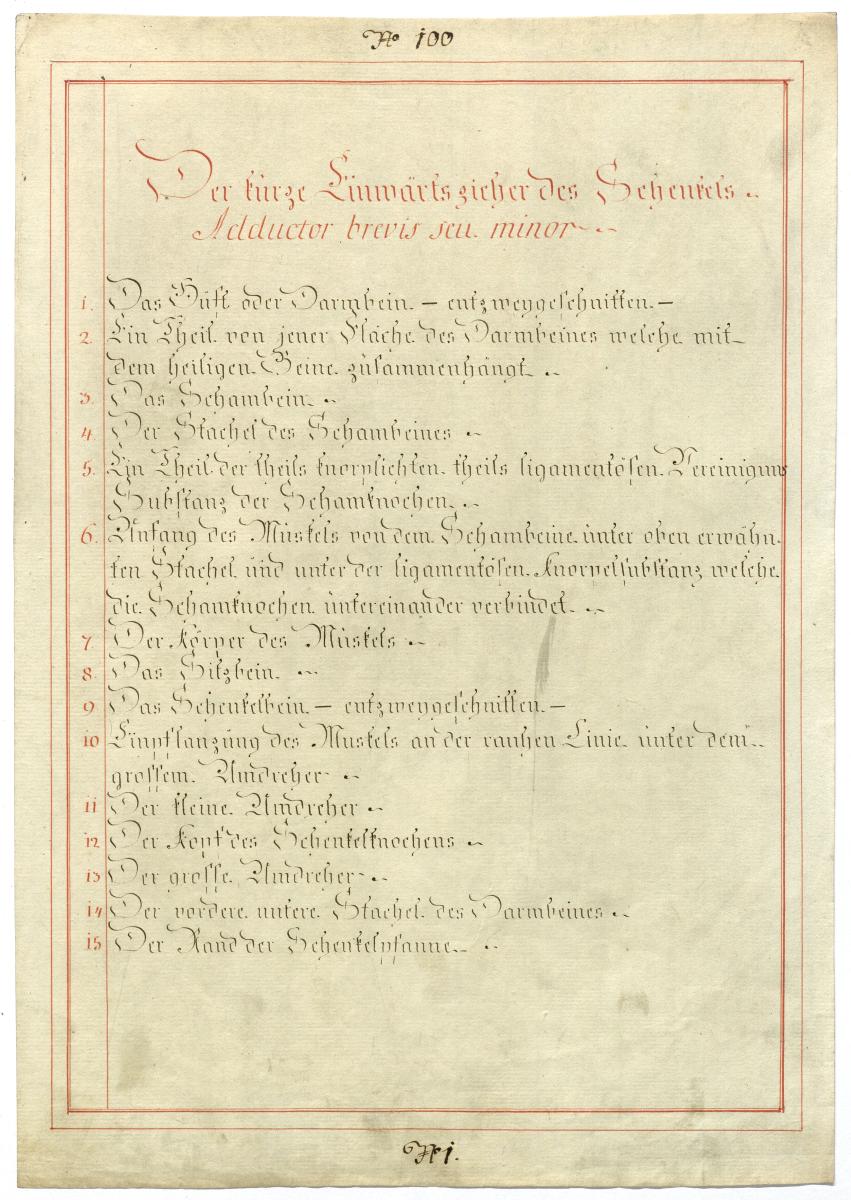 No 100
Der kurze Einwärtszieher des Schenkels
Adductor brevis seu minor
1. Das Hüft oder Darmbein. — entzweygeschnitten. —
2. Ein Theil von jener Fläche des Darmbeines welche mit
dem heiligen Beine zusammenhängt.
3. Das Schambein.
4. Der Stachel des Schambeines
5. Ein Theil der theils knorplichten theils ligamentösen Vereinigungs
Substanz der Schamknochen.
6. Anfang des Muskels von dem Schambeine unter oben erwähn-
ten Stachel und unter der ligamentösen Knorpelsubstanz welche
die Schamknochen untereinander verbindet.
7. Der Körper des Muskels
8. Das Sitzbein.
9 Das Schenkelbein — entzweygeschnitten. —
10 Einpflanzung des Muskels an der rauhen Linie unter dem
grossem Umdreher
11 Der kleine Umdreher
12 Der Kopf des Schenkelknochens
13 Der grosse Umdreher
14 Der vordere untere Stachel des Darmbeines
15 Der Rand der Schenkelpfanne